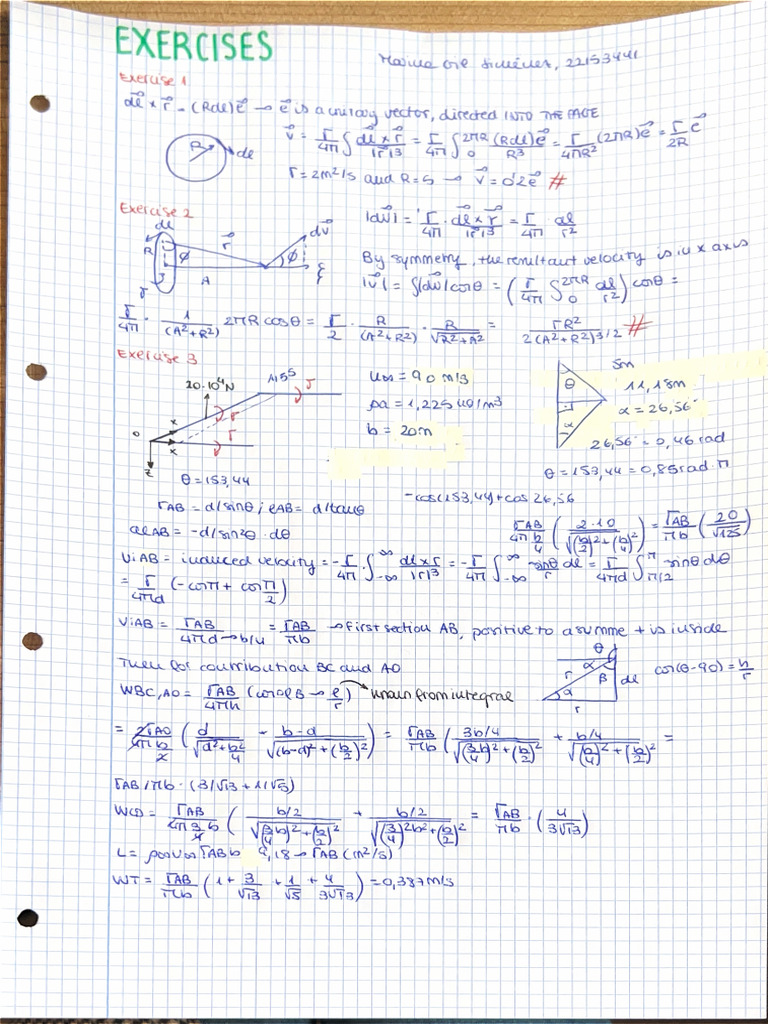 EXERCISES
22153441
Exercise 1
dl × r = (Rdl)e → e is a unitary vector, directed INTO THE PAGE
R dl
v = Γ/4π ∫ dl × r/|r|³ = Γ/4π ∫₀^2πR (Rdl)e/R³ = Γ/4πR² (2πR)e = Γ/2R e
Γ = 2m²/s and R = 5 → v = 0'2e #
Exercise 2
|dv| = Γ/4π · dl × r/|r|³ = Γ/4π dl/r²
dl R φ r A φ dv
By symmetry, the resultant velocity is in x axis
|v| = ∫|dv| cosθ = (Γ/4π ∫₀^2πR dl/r²) cosθ =
Γ/4π · 1/(A²+R²) 2πR cosθ = Γ/2 · R/(A²+R²) · R/√R²+A² = ΓR²/2(A²+R²)^3/2 #
Exercise 3
20·10⁴N
u∞ = 90 m/s
ρa = 1,225 kg/m³
b = 20m
θ = 153,44
5m
11,18m
α = 26,56°
26,56° = 0,46 rad
θ = 153,44 = 0,85rad·π
ΓAB = d/sinθ; lAB = d/tanθ
-cos(153,44)+cos 26,56
dlAB = -d/sin²θ · dθ
ΓAB/4π b/4 (2·10/√(b/2)²+(b/4)²) = ΓAB/πb (20/√125)
ViAB = induced velocity = -Γ/4π · ∫-∞^∞ dl × r/|r|³ = -Γ/4π ∫-∞^∞ sinθ/r dl = Γ/4πd ∫π/2^π sinθ dθ
= Γ/4πd (-cosπ + cos π/2)
ViAB = ΓAB/4πd→b/4 = ΓAB/πb → first section AB, positive to asumme + is inside
Then for contribution BC and AO
cos(θ-90) = h/r
WBC,AO = ΓAB/4πh (cosαB → l/r) → main from integral
= 2ΓAO/4π b/2 (d/√d²+b²/4 + b-d/√(b-d)²+(b/2)²) = ΓAB/πb (3b/4/√(3b/4)²+(b/2)² + b/4/√(b/4)²+(b/2)² =
ΓAB/πb · (3/√13 + 1/√5)
WCD = ΓAB/4π 3/4 b (b/2/√(3b/4)²+(b/2)² + b/2/√(3/4)²b²+(b/2)² = ΓAB/πb · (4/3√13)
L = ρ∞V∞ΓAB b → ΓAB (m²/s)
WT = ΓAB/πb (1 + 3/√13 + 1/√5 + 4/3√13) = 0,387m/s